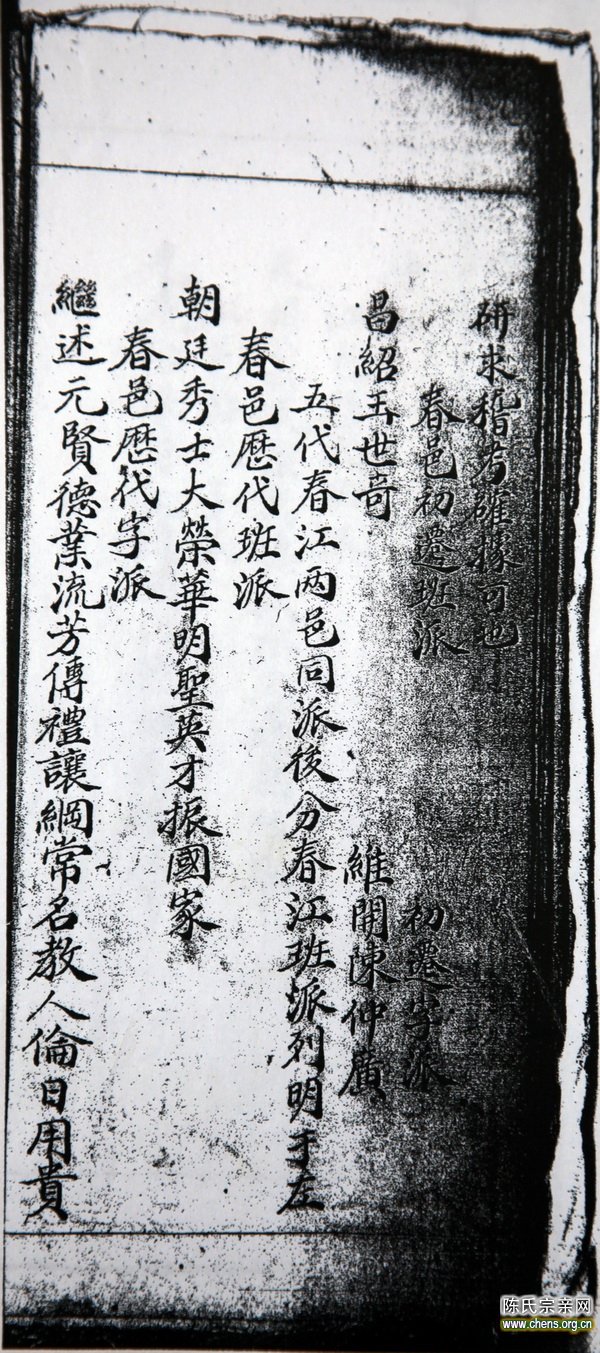 研求稽考確據可也
春邑初遷班派　初遷字派
昌紹玉世奇　維開陳仲廣
五代春江两邑同派後分春江班派列明于左
春邑歷代班派
朝廷秀士大榮華明聖英才振國家
春邑歷代字派
繼述元賢德業流芳傳禮讓綱常名教人倫日用貴
陈氏宗亲网
www.chens.org.cn